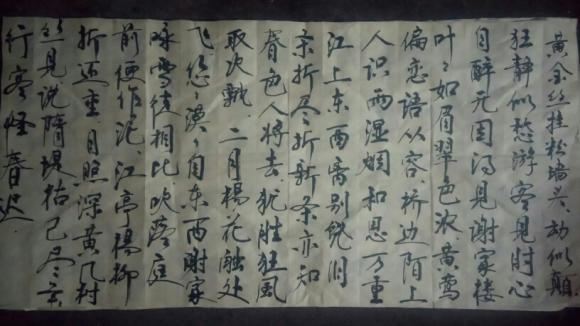 黄金丝挂粉墙头、动似颠
狂静似愁游客见时心
自醉无因得见谢家楼
叶々如眉翠色浓黄莺
偏恋语从容、桥边陌上
人识雨湿烟和思万重
江上东西离别饶旧
条折尽折新条亦知
春色人将去犹胜狂风
取次飘、二月杨花触处
飞悠々漠々自东西谢家
咏雪徒相比、吹落庭
前便作泥、江亭杨柳
折还垂、月照深黄几树
丝见说隋堤枯已尽年
行客怪春迟